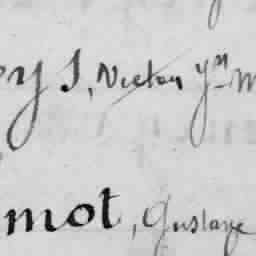 ey J, Victor yn M
mot, Gustave